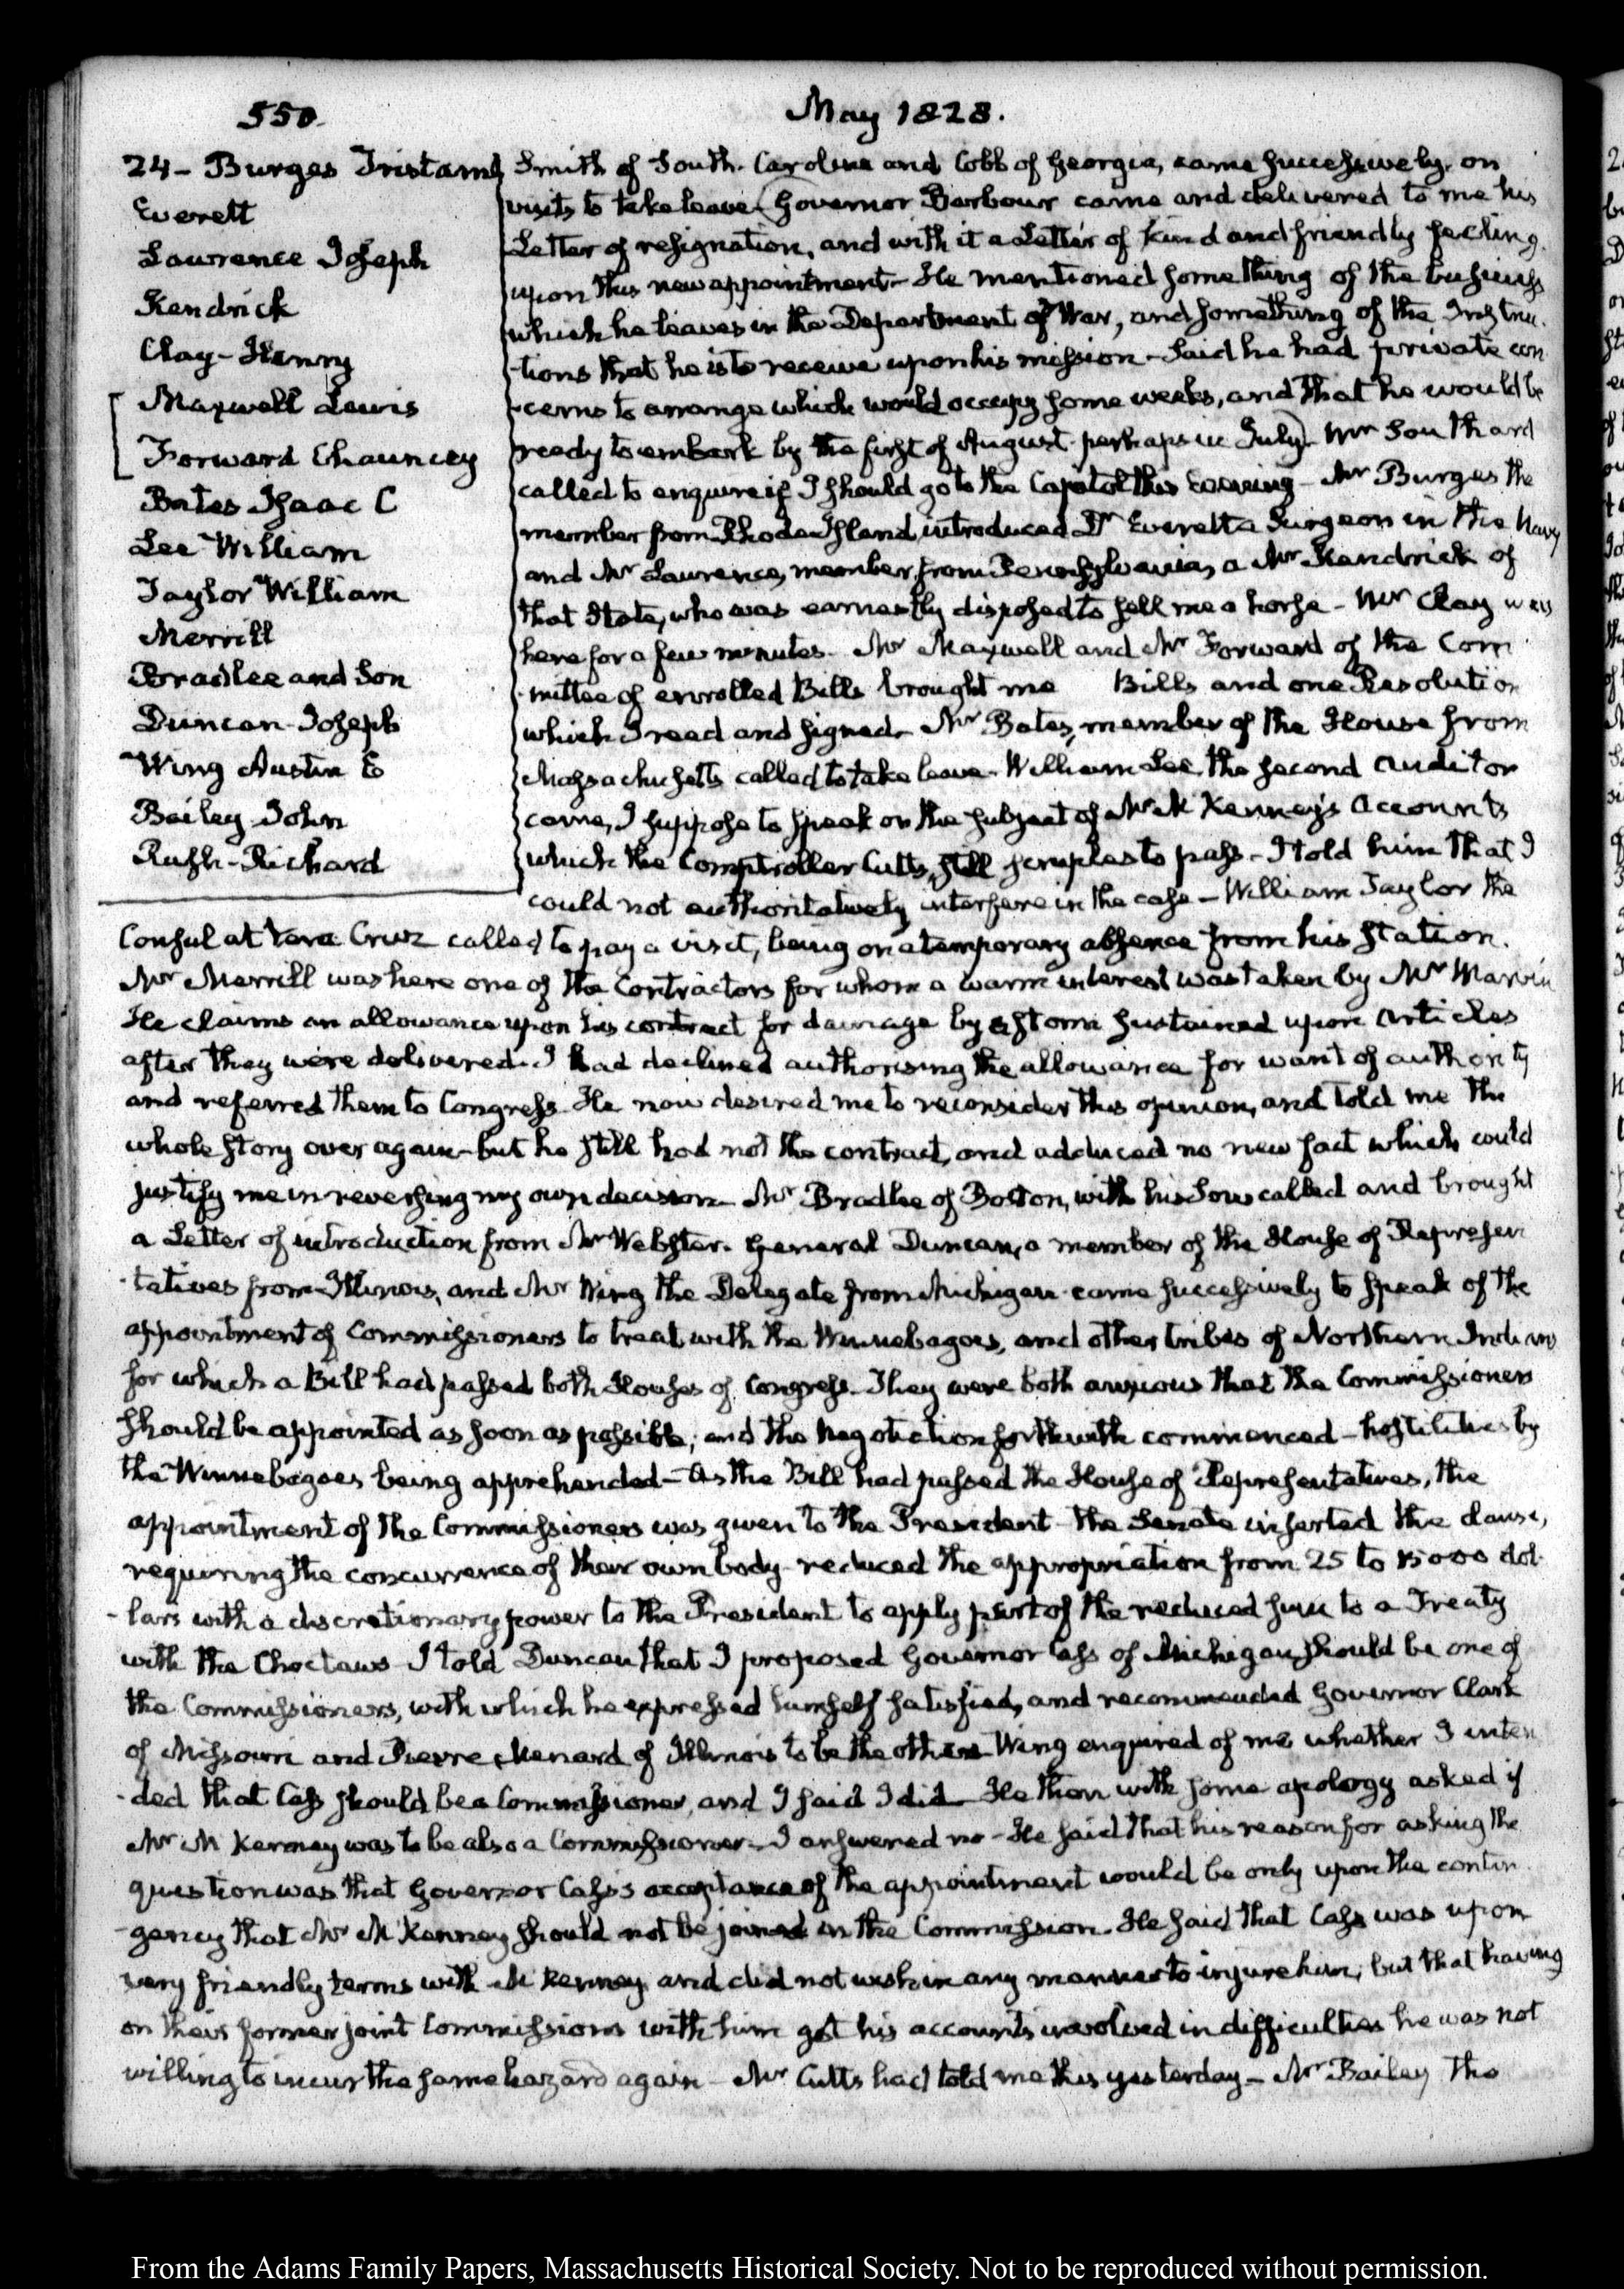 550.
May 1828.
24 - Burges Tristam
Everett
Lawrence Joseph
Kendrick
Clay - Henry
Maxwell Lewis
Forward Chauncey
Bates Isaac C
Lee William
Taylor William
Merrill
Bradlee and Son
Duncan Joseph
Wing Austin E
Bailey John
Rush - Richard
Smith of South-Carolina and Cobb of Georgia, came successively, on
visits to take leave (Governor Barbour came and delivered to me his
Letter of resignation, and with it a Letter of kind and friendly feeling.
upon this new appointment - He mentioned something of the business
which he leaves in the Department of War, and something of the Instruc-
-tions that he is to receive upon his mission - Said he had private con
-cerns to arrange which would occupy some weeks, and that he would be
ready to embark by the first of August perhaps in July) Mr Southard
called to enquire if I should go to the Capitol this Evening - Mr Burges the
member from Rhode-Island, introduced Dr Everett a Surgeon in the Navy
and Mr Lawrence, member from Pennsylvania, a Mr Kendrick of
that State, who was earnestly disposed to sell me a horse - Mr Clay was
here for a few minutes. Mr Maxwell and Mr Forward of the Com
-mittee of enrolled Bills brought me Bills and one Resolution
which I read and signed. Mr Bates, member of the House from
Massachusetts called to take leave. William Lee the second Auditor
came, I suppose to speak on the subject of Mr M'Kenney's Accounts
which the Comptroller Cutts, still scruples to pass - I told him that I
could not authoritatively interfere in the case - William Taylor the
Consul at Vera Cruz called to pay a visit, being on a temporary absence from his station.
Mr Merrill was here one of the Contractors for whom a warm interest was taken by Mr Marvin
He claims an allowance upon his contract for damage by a storm sustained upon articles
after they were delivered. I had declined authorising the allowance for want of authority
and referred them to Congress. He now desired me to reconsider this opinion, and told me the
whole story over again - but he still had not the contract, and adduced no new fact which could
justify me in reversing my own decision. Mr Bradlee of Boston, with his Son called and brought
a Letter of introduction from Mr Webster. General Duncan, a member of the House of Represen
-tatives from Illinois, and Mr Wing the Delegate from Michigan came successively to speak of the
appointment of Commissioners to treat with the Winnebagoes, and other tribes of Northern Indians
for which a Bill had passed both Houses of Congress. They were both anxious that the Commissioners
should be appointed as soon as possible; and the Negotiation forthwith commenced - hostilities by
the Winnebagoes being apprehended - As the Bill had passed the House of Representatives, the
appointment of the Commissioners was given to the President - the Senate inserted the clause,
requiring the concurrence of their own body - reduced the appropriation from 25 to 15000 dol-
-lars with a discretionary power to the President to apply part of the reduced sum to a Treaty
with the Choctaws - I told Duncan that I proposed Governor Cass of Michigan, should be one of
the Commissioners, with which he expressed himself satisfied, and recommended Governor Clark
of Missouri and Pierre Menard of Illinois to be the others - Wing enquired of me whether I inten
-ded that Cass should be a Commissioner, and I said I did - He then with some apology asked if
Mr M'Kenney was to be also a Commissioner - I answered no - He said that his reason for asking the
question was that Governor Cass's acceptance of the appointment would be only upon the contin
-gency that Mr M'Kenney should not be joined in the Commission. He said that Cass was upon
very friendly terms with M'Kenney and did not wish in any manner to injure him; but that having
on their former joint Commissions with him got his accounts involved in difficulties he was not
willing to incur the same hazard again - Mr Cutts had told me this yesterday - Mr Bailey the
From the Adams Family Papers, Massachusetts Historical Society. Not to be reproduced without permission.